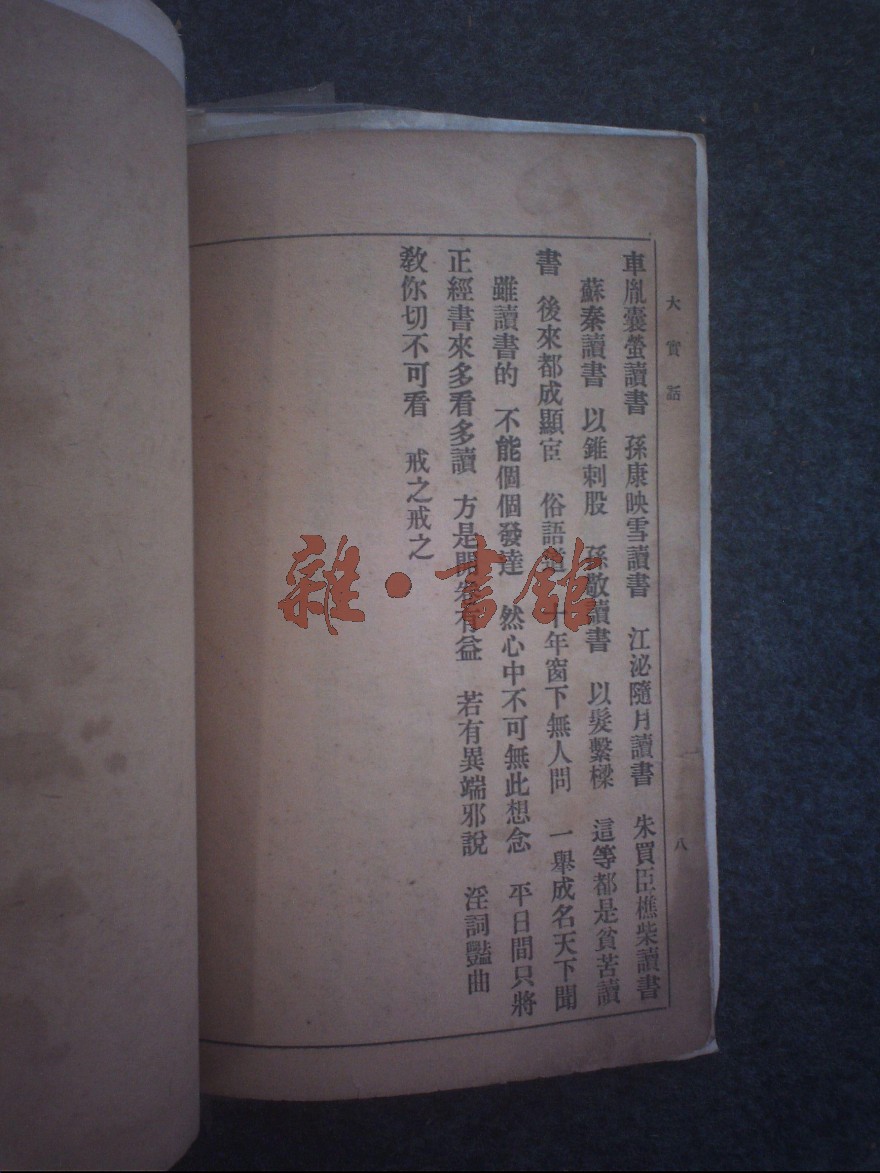 大實話
八
車胤囊螢讀書　孫康映雪讀書　江泌隨月讀書　朱買臣樵柴讀書
蘇秦讀書　以錐刺股　孫敬讀書　以髮繫樑　這等都是貧苦讀
書　後來都成顯宦　俗語道　十年窗下無人問　一舉成名天下聞
雖讀書的　不能個個發達　然心中不可無此想念　平日間只將
正經書來多看多讀　方是開卷有益　若有異端邪說　淫詞豔曲
教你切不可看　戒之戒之
雜·書館